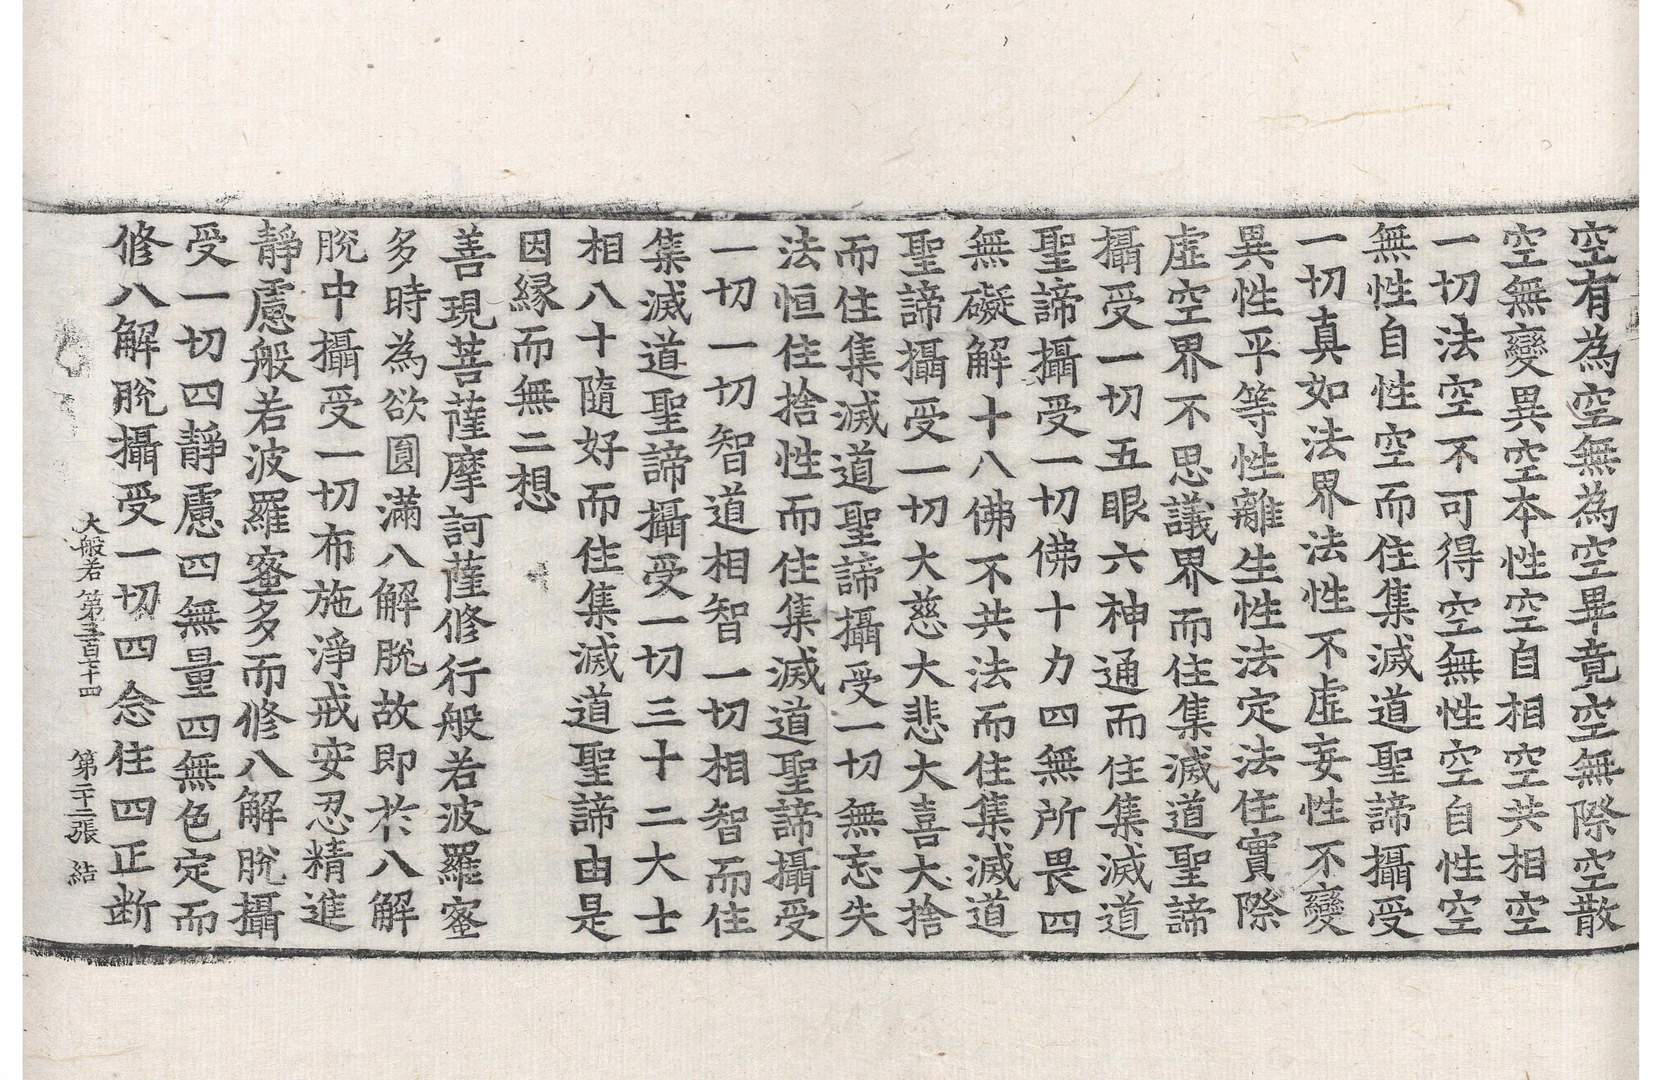 空有為空無為空畢竟空無際空散
空無變異空本性空自相空共相空
一切法空不可得空無性空自性空
無性自性空而住集滅道聖諦攝受
一切真如法界法性不虛妄性不變
異性平等性離生性法定法住實際
虛空界不思議界而住集滅道聖諦
攝受一切五眼六神通而住集滅道
聖諦攝受一切佛十力四無所畏四
無礙解十八佛不共法而住集滅道
聖諦攝受一切大慈大悲大喜大捨
而住集滅道聖諦攝受一切無忘失
法恒住捨性而住集滅道聖諦攝受
一切一切智道相智一切相智而住
集滅道聖諦攝受一切三十二大士
相八十隨好而住集滅道聖諦由是
因縁而無二想
善現菩薩摩訶薩修行般若波羅蜜
多時為欲圓滿八解脫故即於八解
脫中攝受一切布施淨戒安忍精進
靜慮般若波羅蜜多而修八解脫攝
受一切四靜慮四無量四無色定而
修八解脫攝受一切四念住四正断
大般若第三百七十四 第二十二張 結